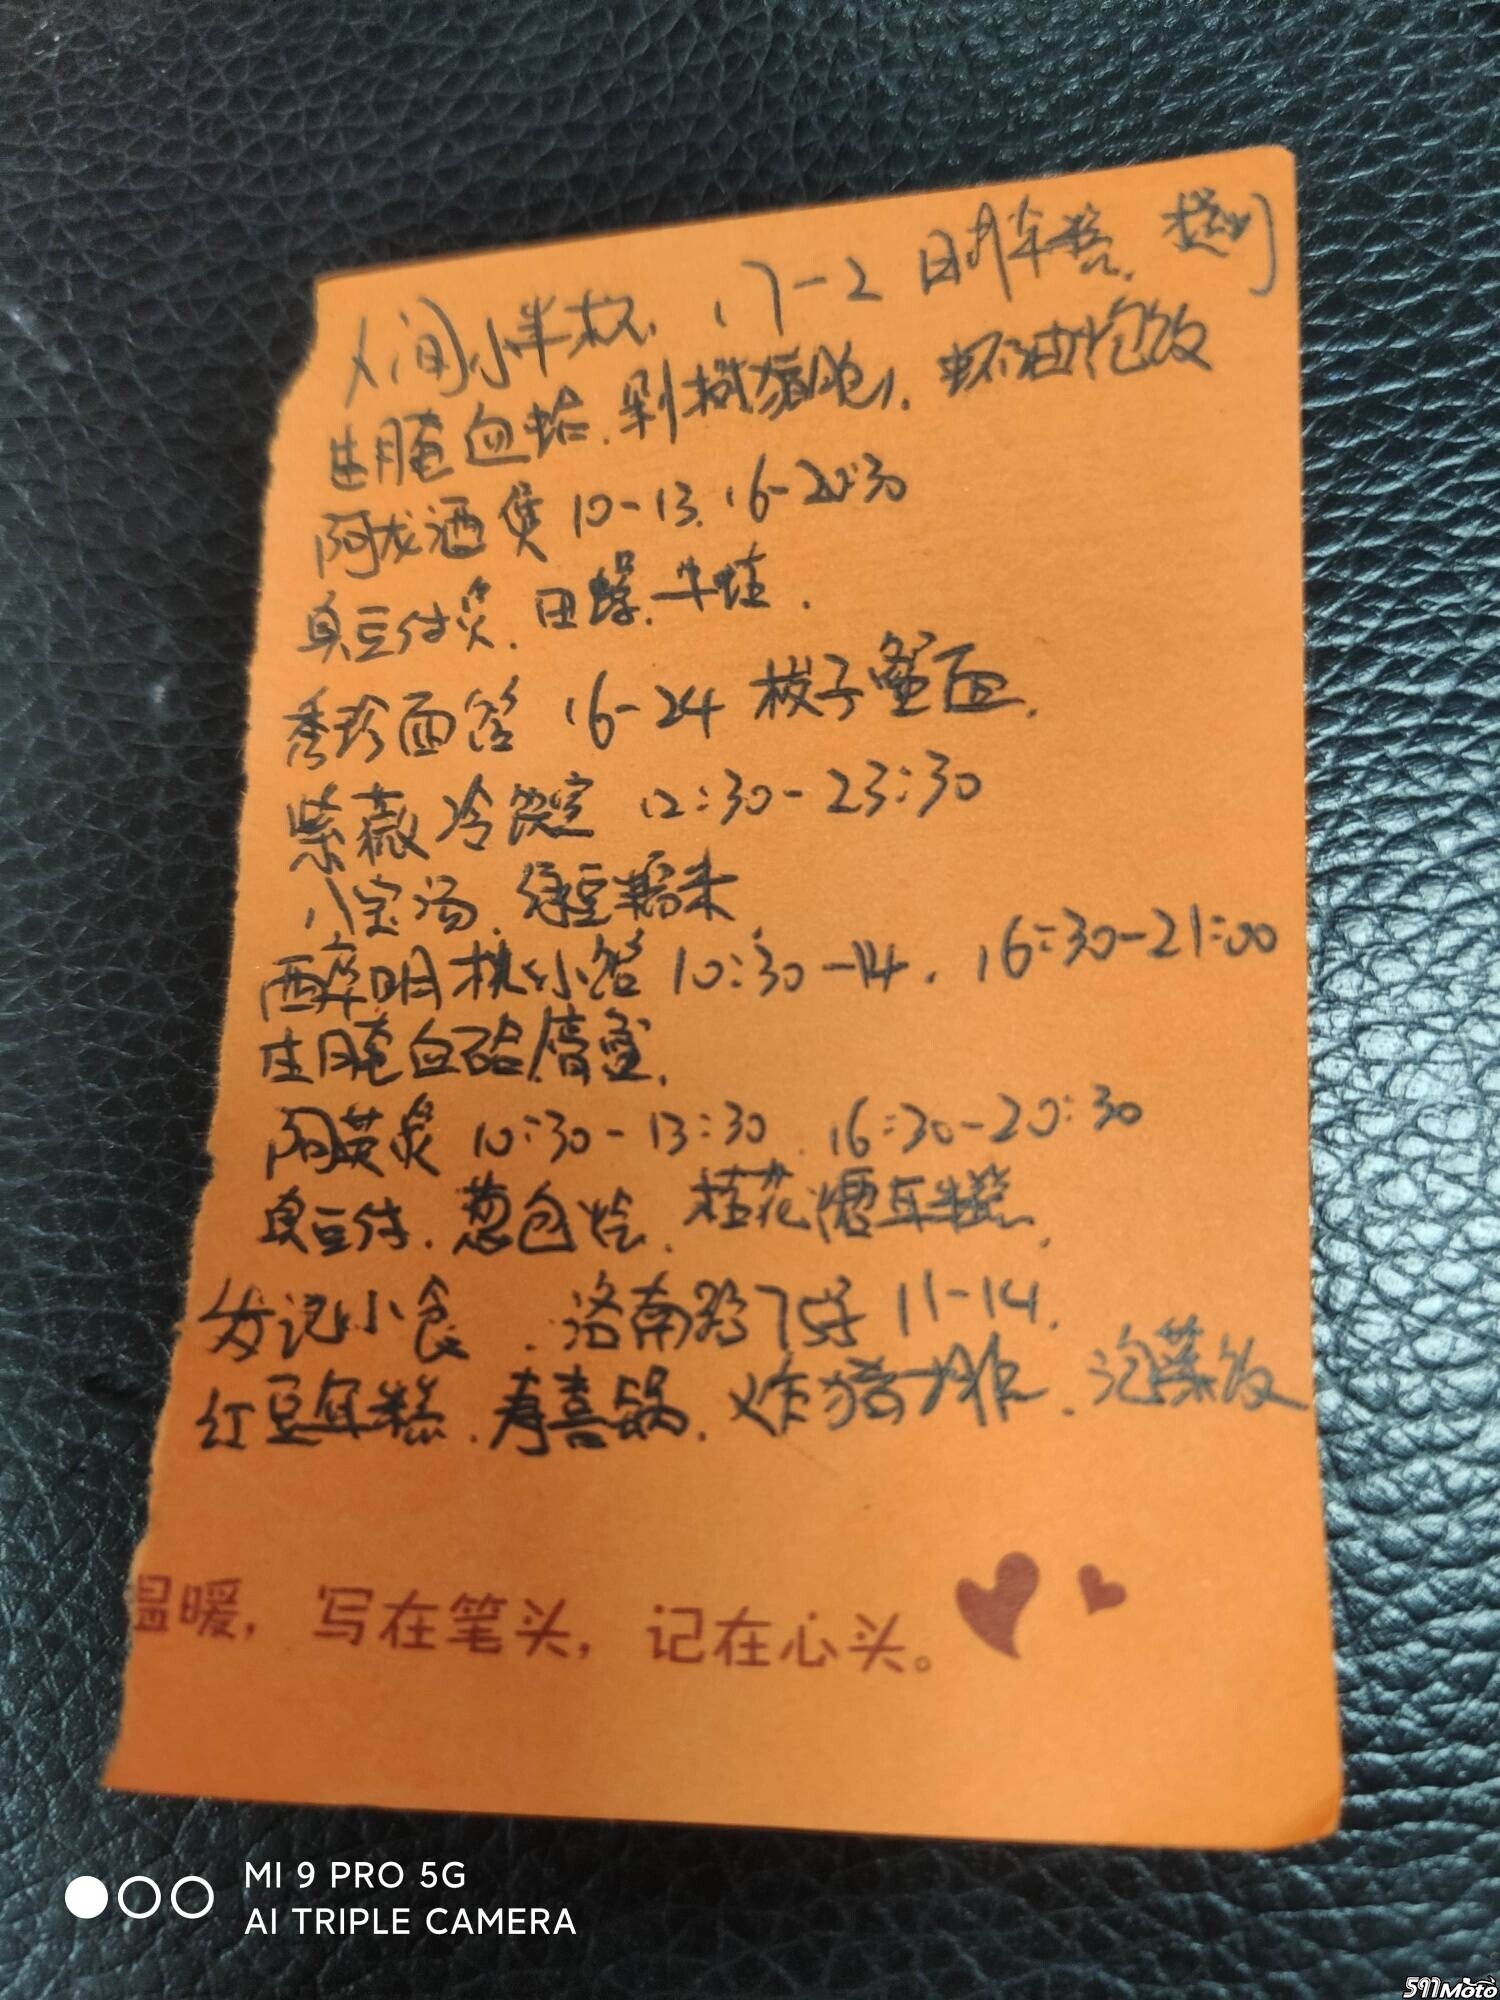 人间小 17-2 日月车
生腌血蛤. 剁椒猪肚. 虾油炮饭
阿龙酒煲 10-13. 16-20:30
臭豆付煲. 田螺. 牛蛙.
秀珍面馆 16-24 梭子蟹面.
紫薇冷饮店 12:30-23:30
八宝汤. 绿豆糯米
醉明小馆 10:30-14. 16:30-21:00
生腌血蛤. 膏蟹.
阿英煲 10:30-13:30. 16:30-20:30
臭豆付. 葱包烩. 桂花酒年糕.
发记小食. 洛南路75号 11-14.
红豆年糕. 寿喜锅. 炸猪排. 泡菜饭
温暖，写在笔头，记在心头。
MI 9 PRO 5G
AI TRIPLE CAMERA
591Moto